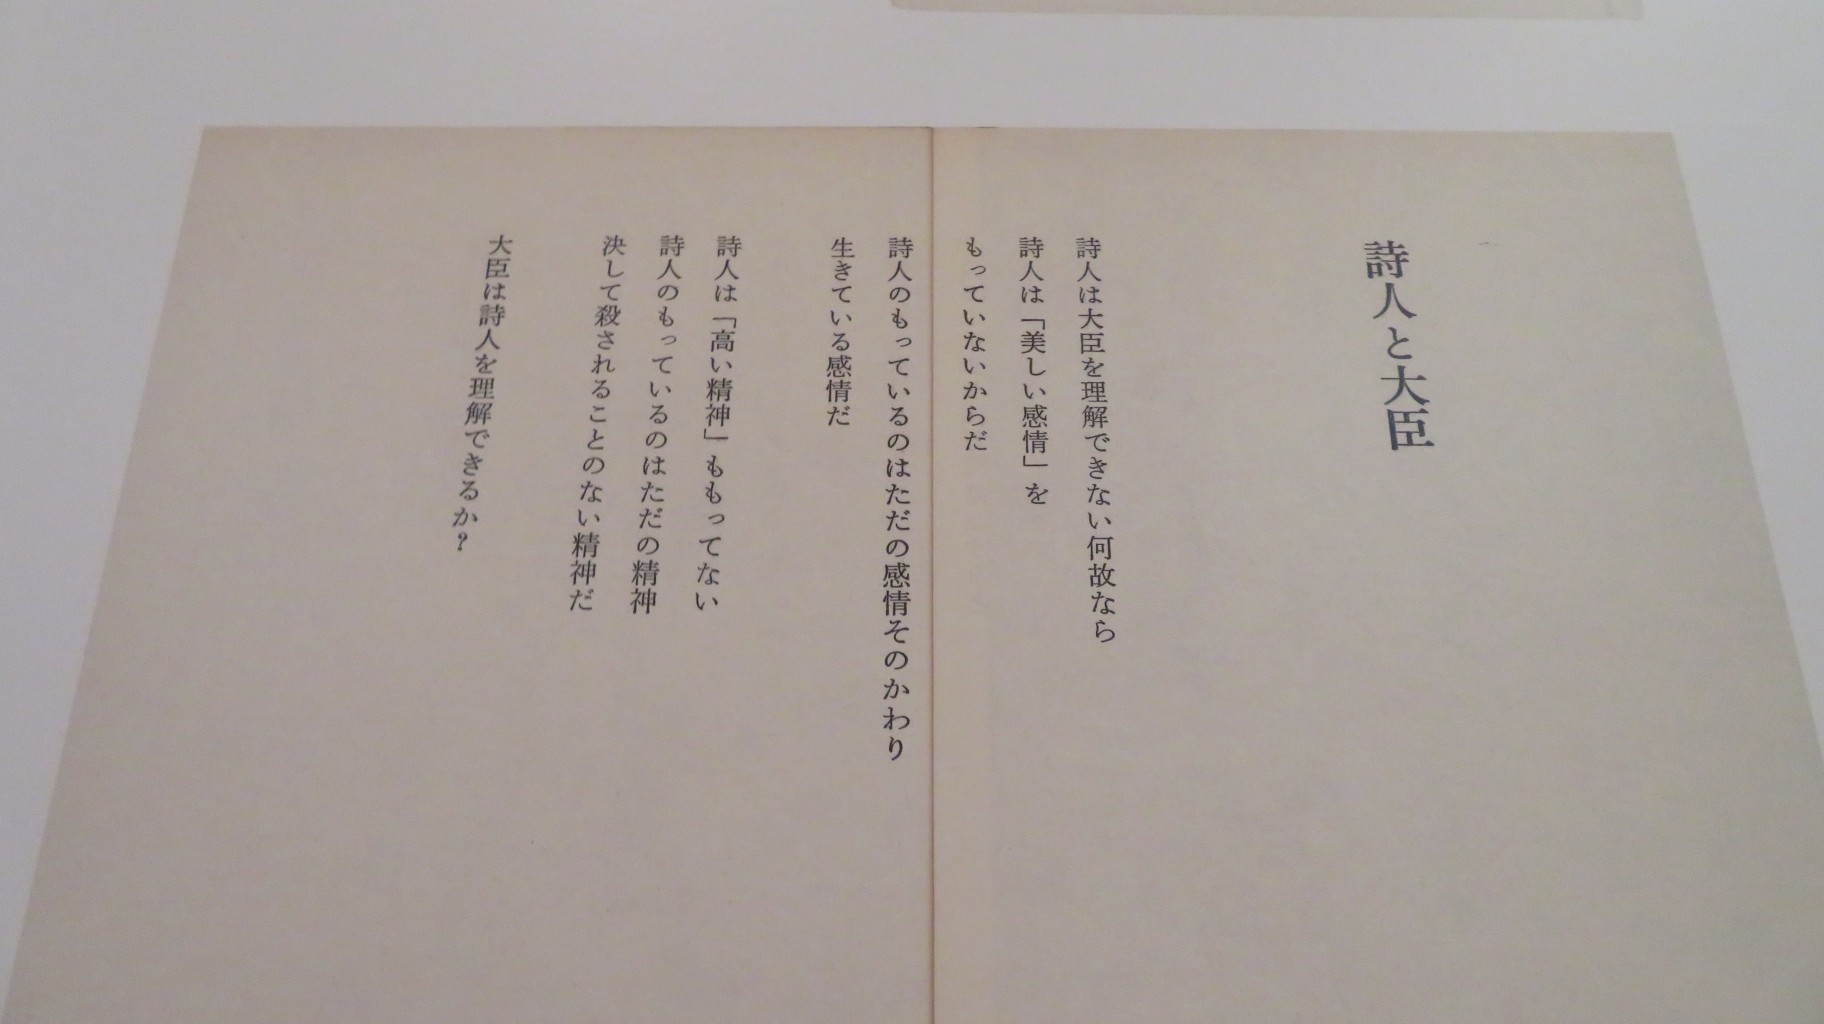 詩人と大臣
詩人は大臣を理解できない何故なら
詩人は「美しい感情」を
もっていないからだ
詩人のもっているのはただの感情そのかわり
生きている感情だ
詩人は「高い精神」ももってない
詩人のもっているのはただの精神
決して殺されることのない精神だ
大臣は詩人を理解できるか?